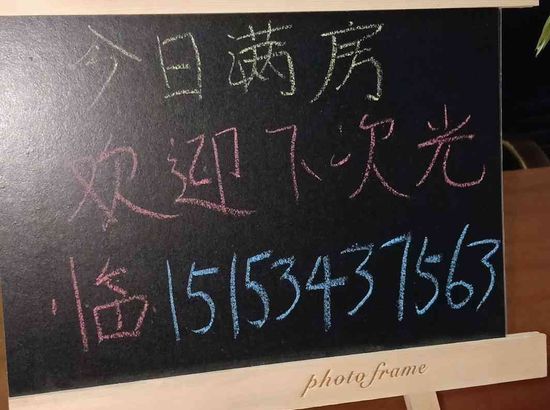 今日满房
欢迎下次光
临15153437563
photo frame